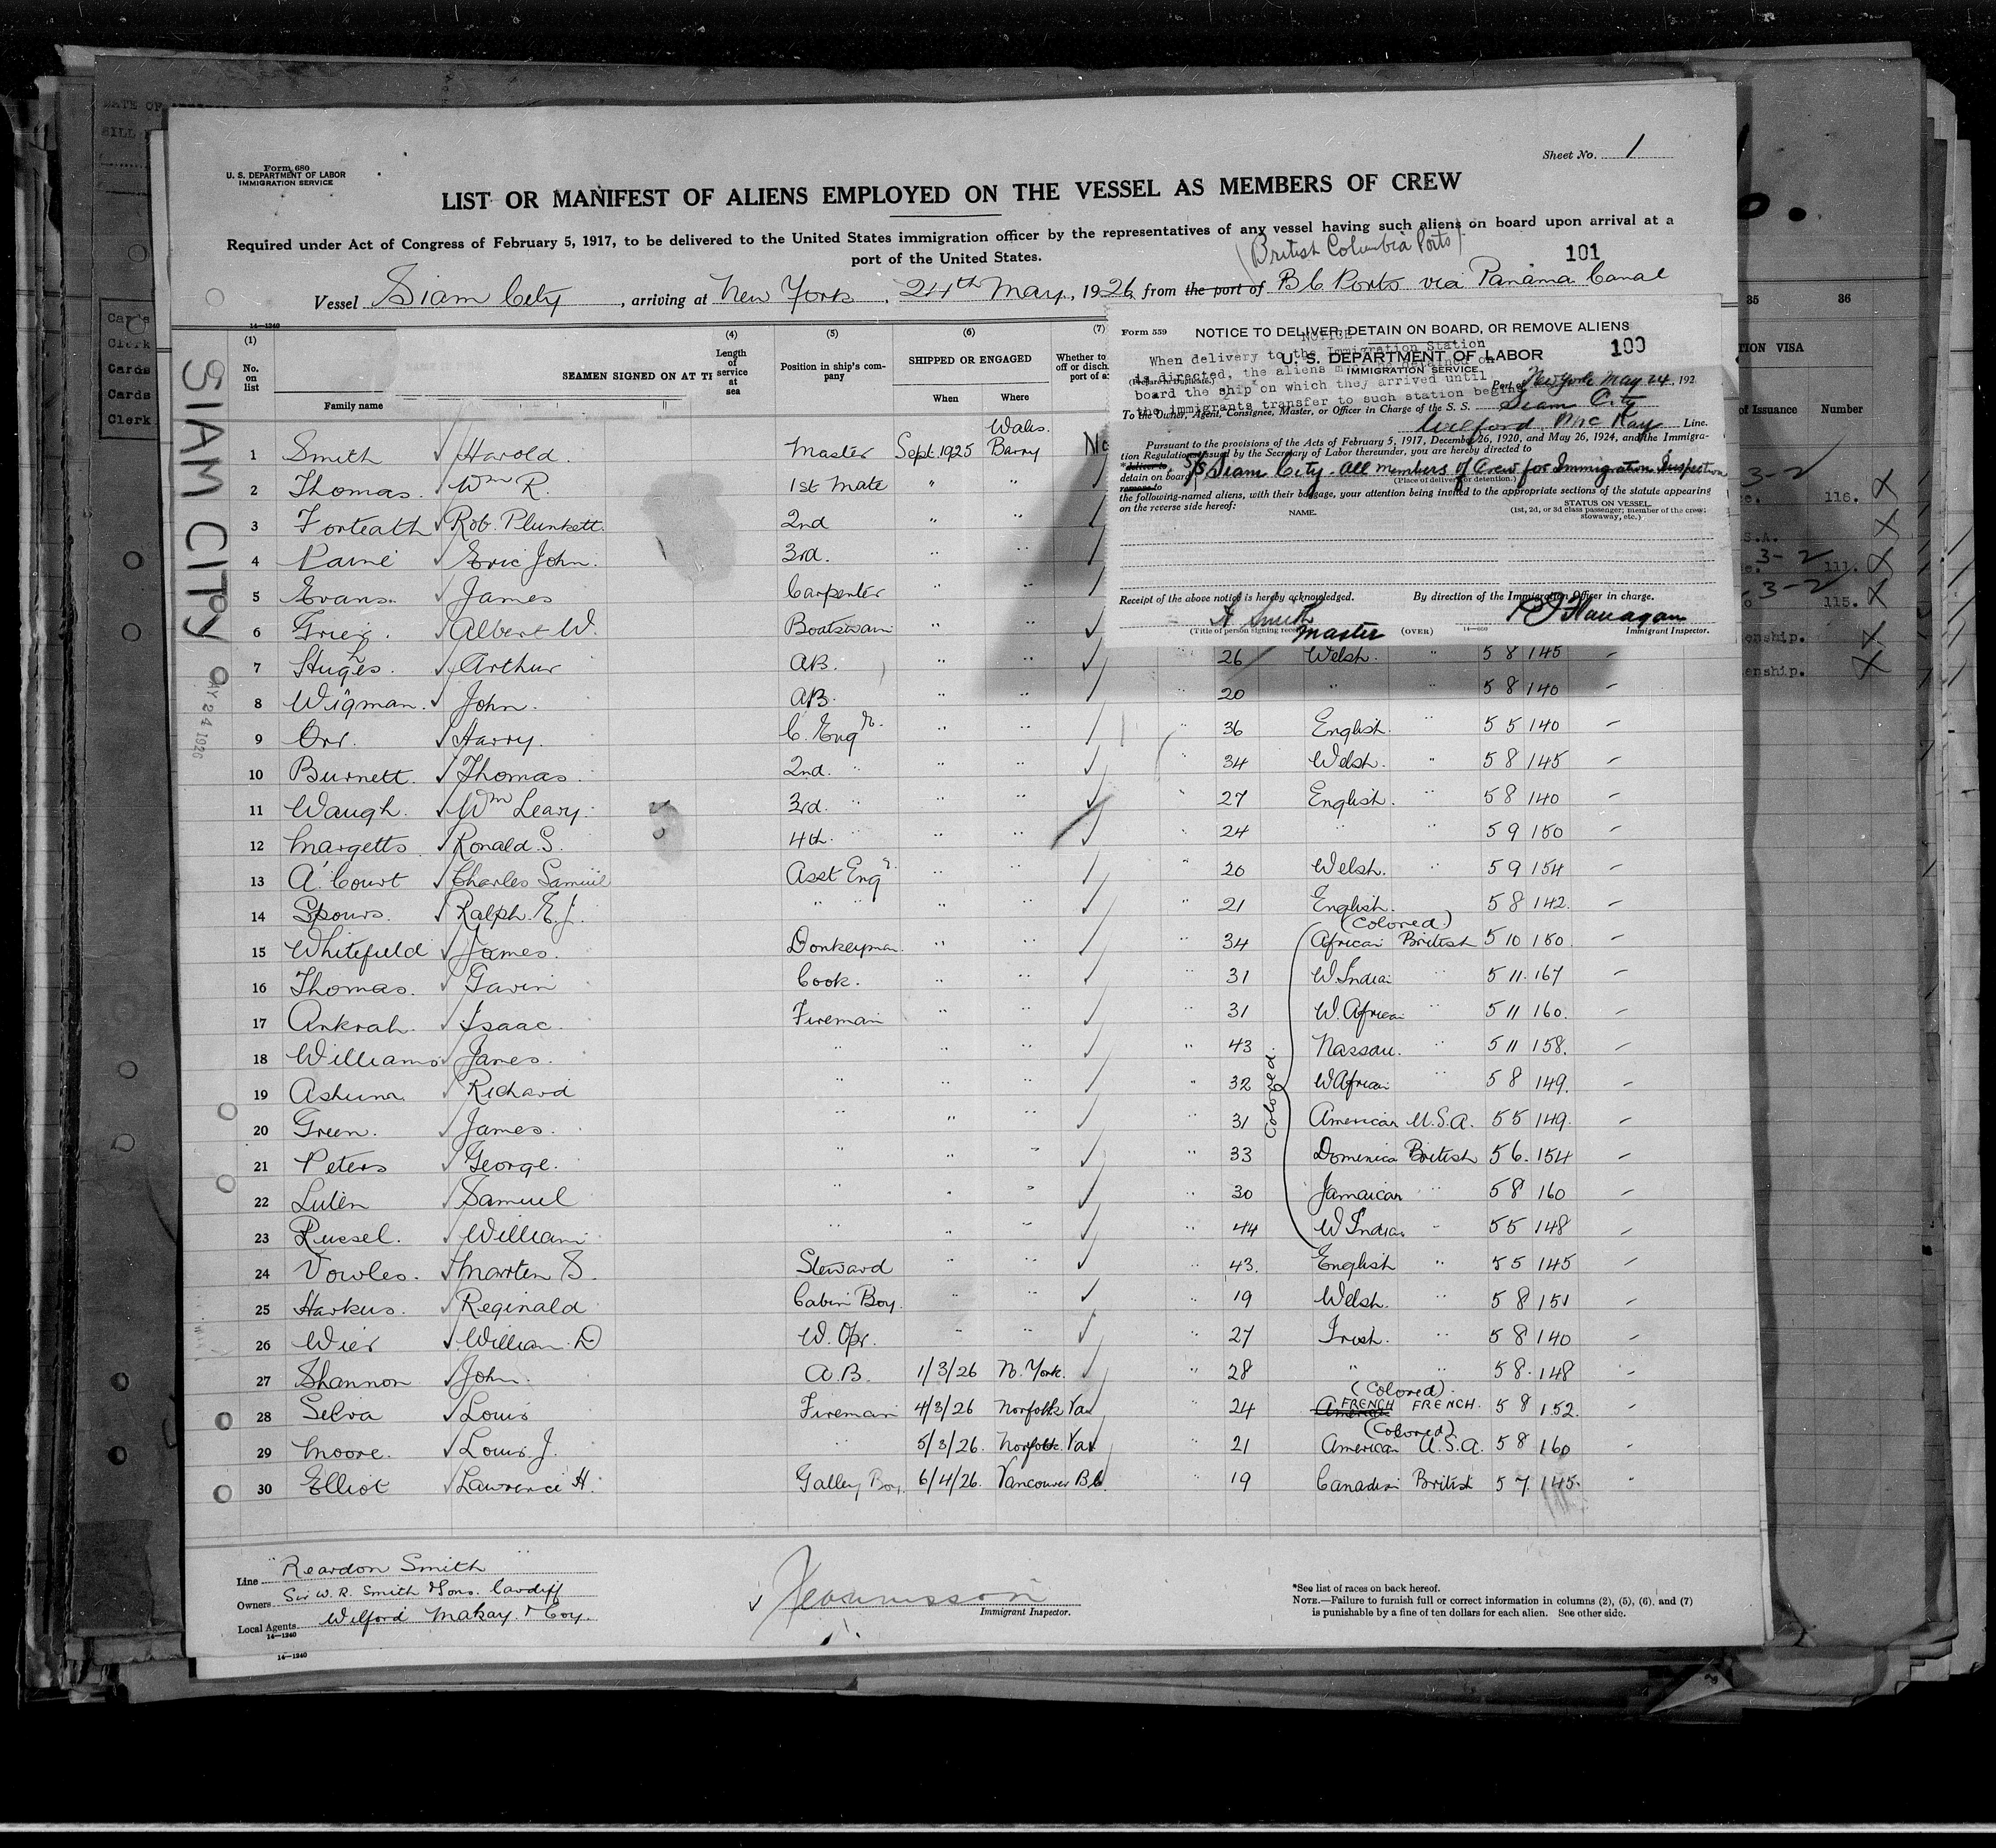 Form 680
U. S. DEPARTMENT OF LABOR
IMMIGRATION SERVICE
Sheet No. 1
LIST OR MANIFEST OF ALIENS EMPLOYED ON THE VESSEL AS MEMBERS OF CREW
Required under Act of Congress of February 5, 1917, to be delivered to the United States immigration officer by the representatives of any vessel having such aliens on board upon arrival at a
port of the United States.
(British Columbia Ports)
101
Vessel Siam City, arriving at New York, 24th May, 1926, from the port of B C Ports via Panama Canal
14—1240
(1) (4) (5) (6) (7)
No. on list
Family name
SEAMEN SIGNED ON AT
Length of service at sea
Position in ship's company
SHIPPED OR ENGAGED
When Where
Whether to
off or disch
port of a
Form 559
NOTICE TO DELIVER, DETAIN ON BOARD, OR REMOVE ALIENS
100
NOTICE
When delivery to the Immigration Station
is directed, the aliens
board the ship on which they arrived until
the immigrants transfer to such station
U. S. DEPARTMENT OF LABOR
IMMIGRATION SERVICE
(Prepare in Duplicate.)
Port of New York May 24, 192
To the Owner, Agent, Consignee, Master, or Officer in Charge of the S. S. Siam City
Wilford, Mc Kay Line.
Pursuant to the provisions of the Acts of February 5, 1917, December 26, 1920, and May 26, 1924, and the Immigra-
tion Regulations issued by the Secretary of Labor thereunder, you are hereby directed to
*deliver to
detain on board S/S Siam City - all members of Crew for Immigration Inspection
remove to
(Place of delivery or detention.)
the following-named aliens, with their baggage, your attention being invited to the appropriate sections of the statute appearing
on the reverse side hereof:
NAME.
STATUS ON VESSEL.
(1st, 2d, or 3d class passenger; member of the crew;
stowaway, etc.)
Receipt of the above notice is hereby acknowledged.
By direction of the Immigration Officer in charge.
H Smith
Master
(Title of person signing
(OVER)
Flanagan
Immigrant Inspector.
SIAM CITY
MAY 24 1926
1 Smith Harold. Master Sept. 1925 Wales. Barry No
2 Thomas. Wm R. 1st Mate " "
3 Forteath Rob. Plunkett. 2nd " "
4 Paine Eric John. 3rd. " "
5 Evans. James Carpenter " "
6 Grieg. Albert W. Boatswain " "
7 Hughes. Arthur AB. " " " 26 Welsh. " 5 8 145
8 Wigman. John. AB. " " " 20 " " 5 8 140
9 Orr. Harry. C. Engr. " " " 36 English. " 5 5 140
10 Burnett. Thomas. 2nd. " " " " 34 Welsh. " 5 8 145
11 Waugh. Wm Leary. 3rd. " " " " 27 English. " 5 8 140
12 Margetts Ronald. S. 4th. " " " " 24 " " 5 9 150
13 A'Court Charles Samuel Asst Engr " " " 20 Welsh. " 5 9 154
14 Spours. Ralph. E. J. " " " " 21 English. 5 8 142.
(Colored)
15 Whitefield James. Donkeyman. " " " 34 African British 5 10 150.
16 Thomas. Gavin Cook. " " " 31 W. Indian " 5 11. 167
17 Ankrah. Isaac. Fireman " " " 31 W. African " 5 11 160.
18 Williams James. " " " " 43 Nassau. " 5 11 158.
Colored.
19 Richard " " " " 32 W African " 5 8 149.
20 Green. James. " " " " 31 American U.S.A. 5 5 149.
21 Peters George. " " " " 33 Dominica British 5 6. 154
22 Samuel " " " " 30 Jamaican " 5 8 160
23 Russel. William " " " " 44 W Indian " 5 5 148
24 Vowles. Marten S. Steward " " " 43. English " 5 5 145
25 Harkus. Reginald Cabin Boy. " " " 19 Welsh. " 5 8 151
26 Wier William. D W. Opr. " " " 27 Irish. " 5 8 140
27 Shannon John. A.B. 1/3/26 N. York. " 28 " " 5 8. 148
(Colored)
28 Selva Louis Fireman 4/3/26 Norfolk Va " 24 American FRENCH FRENCH. 5 8 152.
(Colored)
29 Moore. Louis. J. " 5/3/26. Norfolk. Va " 21 American U.S.A. 5 8 160
30 Elliot Lawrence H. Galley Boy. 6/4/26. Vancouver B C. " 19 Canadian British 5 7. 145.
Line "Reardon Smith"
Owners Sir W. R. Smith & Sons. Cardiff
Local Agents Wilford Makay & Coy.
14—1240
14—1240
Immigrant Inspector.
*See list of races on back hereof.
NOTE.—Failure to furnish full or correct information in columns (2), (5), (6), and (7)
is punishable by a fine of ten dollars for each alien. See other side.
DATE OF
Cards
Clerk
Cards
Cards
Clerk
35 36
TION VISA
of Issuance Number
3-2 116. X
S.A.
3-2 111. X
3-2 115. X
enship. X
enship. X